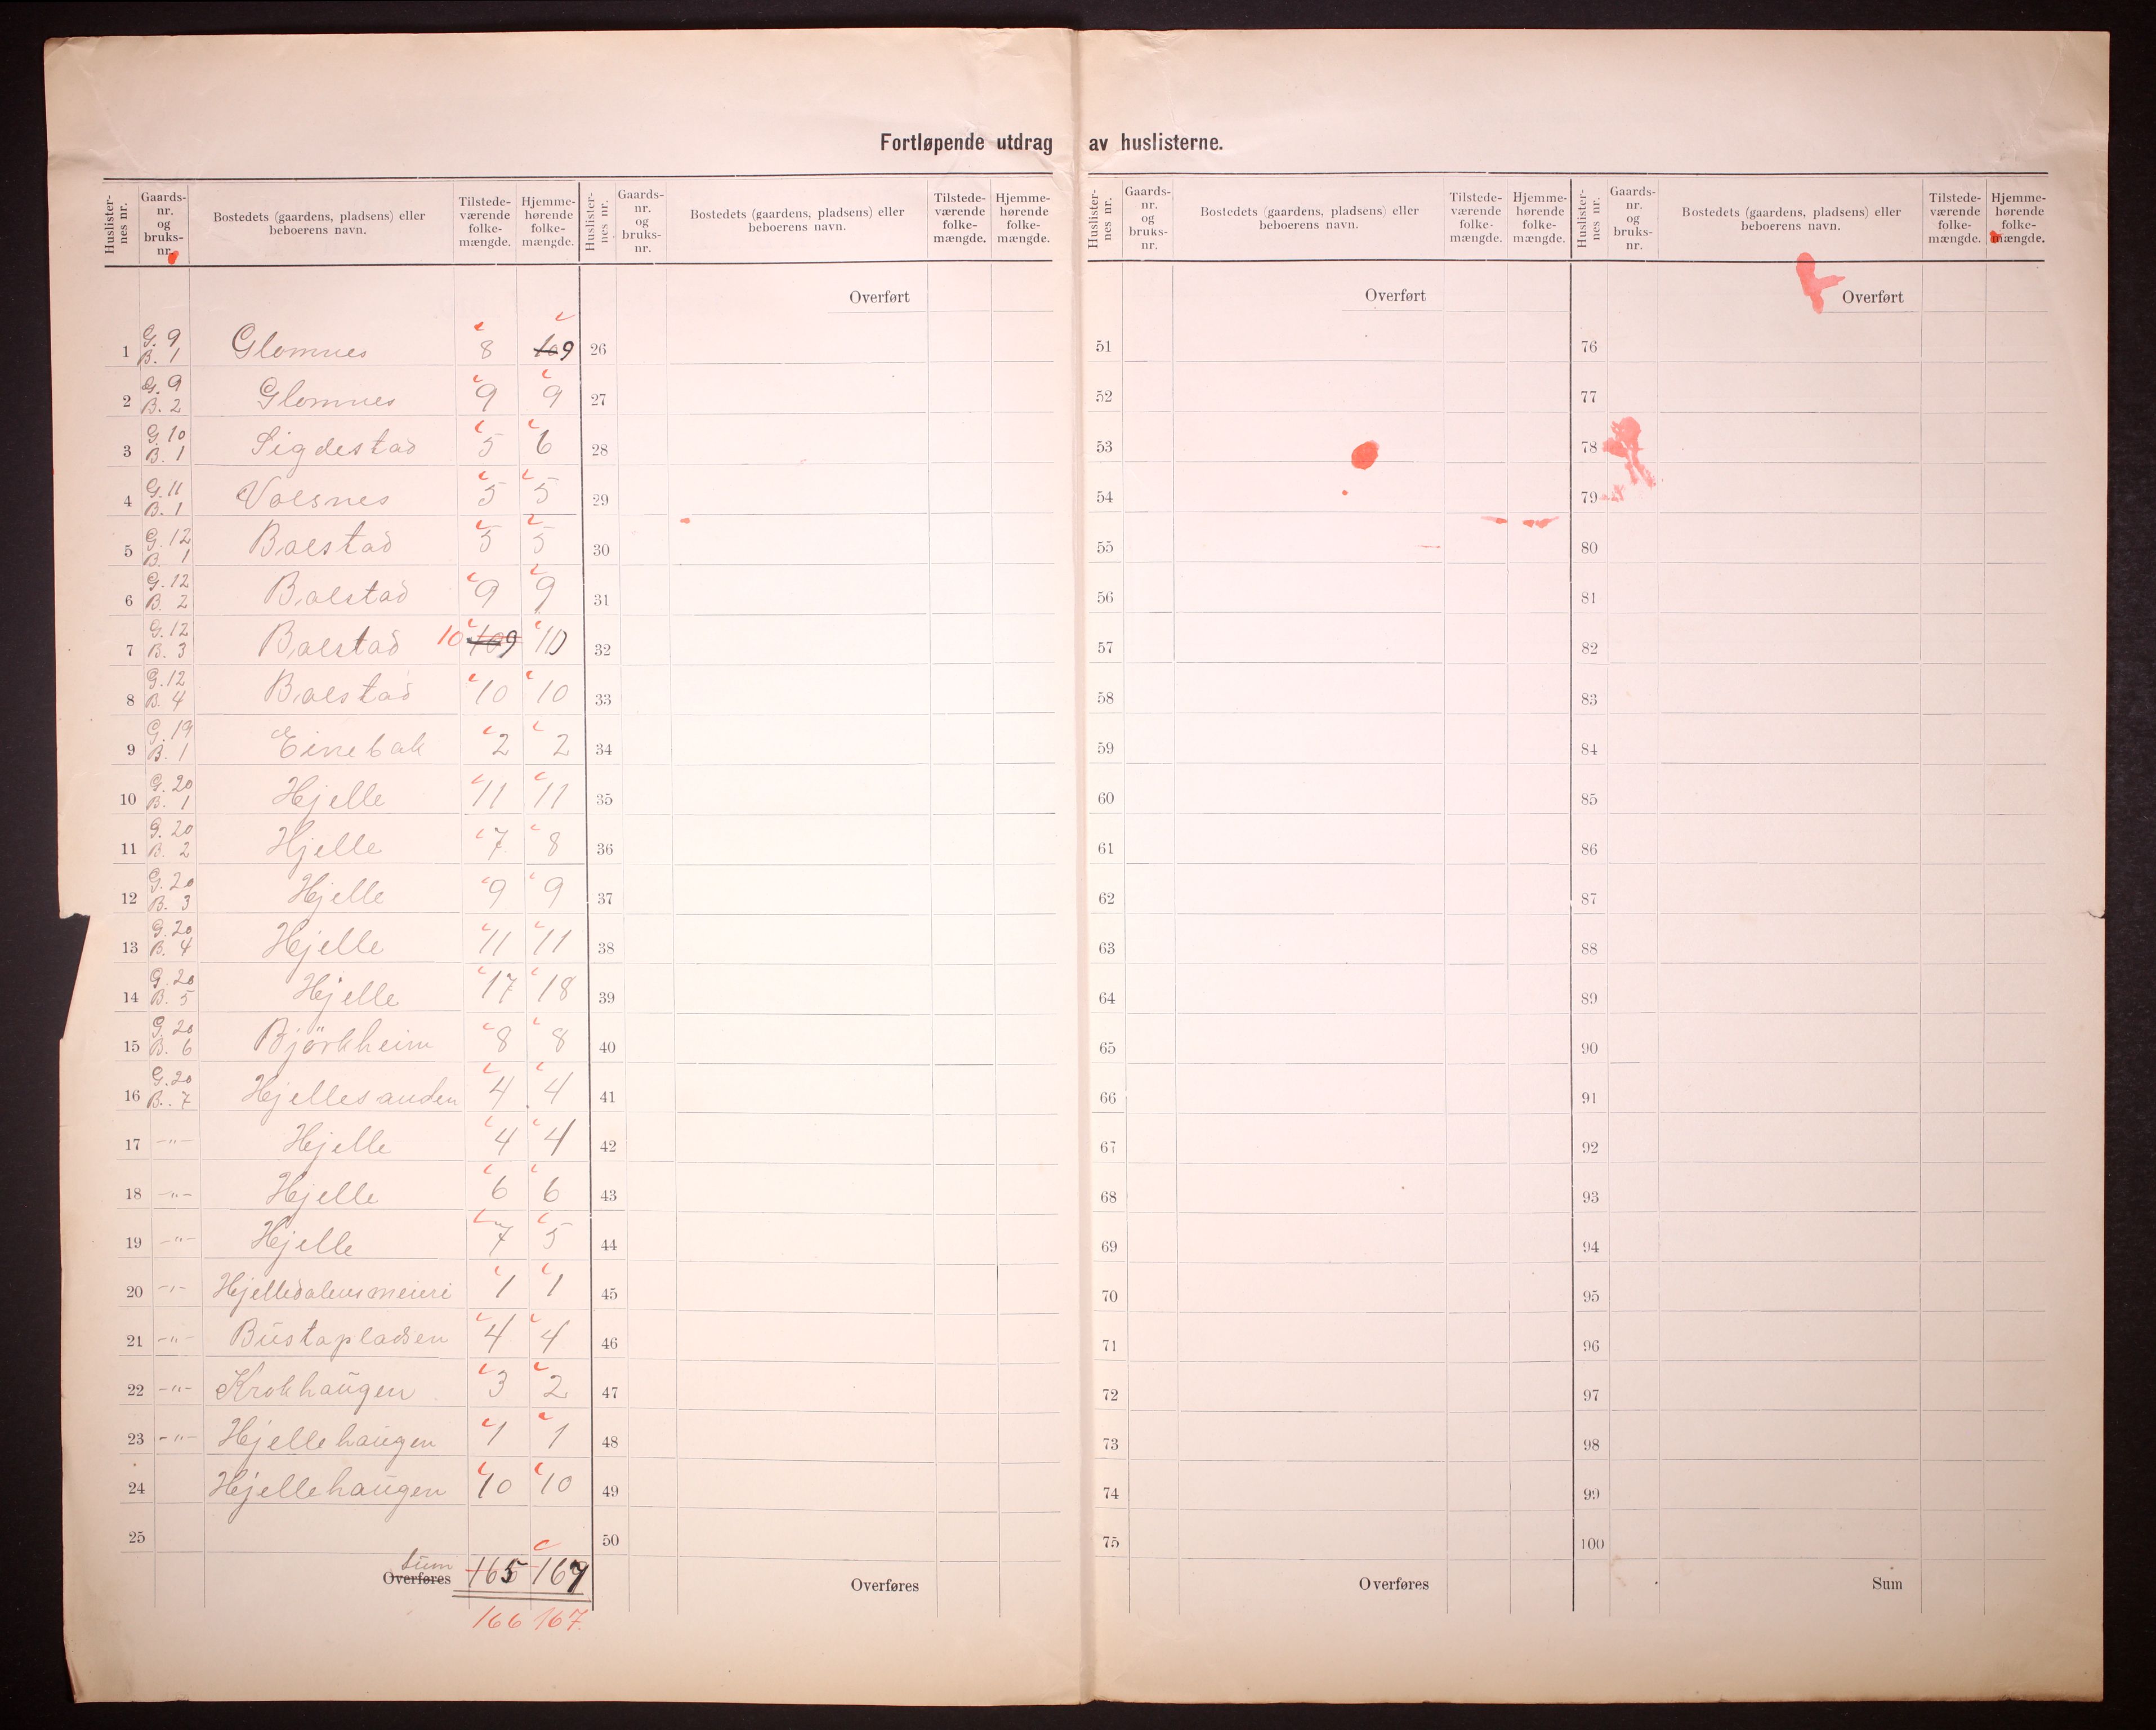 Fortløpende utdrag av huslisterne.
Huslisternes nr. Gaards-nr. og bruks-nr. Bostedets (gaardens, pladsens) eller beboerens navn. Tilstede-værende folke-mængde. Hjemme-hørende folke-mængde.
Huslisternes nr. Gaards-nr. og bruks-nr. Bostedets (gaardens, pladsens) eller beboerens navn. Tilstede-værende folke-mængde. Hjemme-hørende folke-mængde.
Huslisternes nr. Gaards-nr. og bruks-nr. Bostedets (gaardens, pladsens) eller beboerens navn. Tilstede-værende folke-mængde. Hjemme-hørende folke-mængde.
Huslisternes nr. Gaards-nr. og bruks-nr. Bostedets (gaardens, pladsens) eller beboerens navn. Tilstede-værende folke-mængde. Hjemme-hørende folke-mængde.
Overført Overført Overført
1 G. 9 B. 1 Glomnes 8 10 9 26 51 76
2 G. 9 B. 2 Glomnes 9 9 27 52 77
3 G. 10 B. 1 Sigdestad 5 6 28 53 78
4 G. 11 B. 1 Valsnes 5 5 29 54 79
5 G. 12 B. 1 Bolstad 5 5 30 55 80
6 G. 12 B. 2 Bolstad 9 9 31 56 81
7 G. 12 B. 3 Bolstad 10 10 9 10 32 57 82
8 G. 12 B. 4 Bolstad 10 10 33 58 83
9 G. 19 B. 1 Einebak 2 2 34 59 84
10 G. 20 B. 1 Hjelle 11 11 35 60 85
11 G. 20 B. 2 Hjelle 7 8 36 61 86
12 G. 20 B. 3 Hjelle 9 9 37 62 87
13 G. 20 B. 4 Hjelle 11 11 38 63 88
14 G. 20 B. 5 Hjelle 17 18 39 64 89
15 G. 20 B. 6 Björkheim 8 8 40 65 90
16 G. 20 B. 7 Hjellesanden 4 4 41 66 91
17 -"- Hjelle 4 4 42 67 92
18 -"- Hjelle 6 6 43 68 93
19 -"- Hjelle 7 5 44 69 94
20 -"- Hjelledalens meieri 1 1 45 70 95
21 -"- Bustapladsen 4 4 46 71 96
22 -"- Krokhaugen 3 2 47 72 97
23 -"- Hjellehaugen 1 1 48 73 98
24 Hjellehaugen 10 10 49 74 99
25 50 75 100
Sum
Overføres 165 167 Overføres Overføres Sum
166 167.